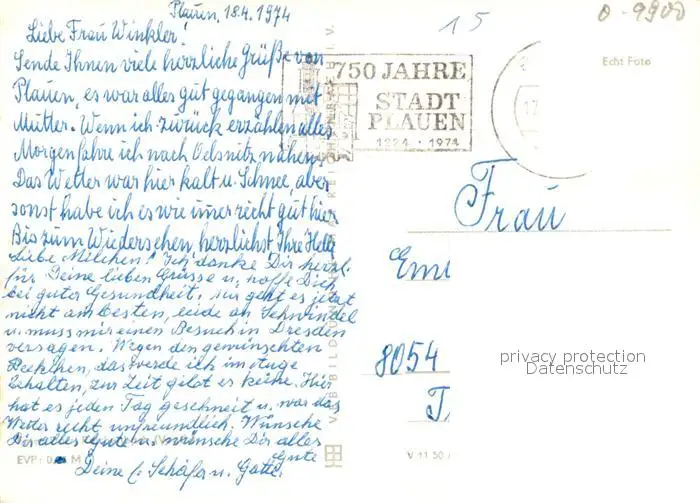 Plauen, 18.4.1974
Liebe Frau Winkler!
Sende Ihnen viele herzliche Grüße von
Plauen, es war alles gut gegangen mit
Mutter. Wenn ich zurück erzählen alles
Morgen fahre ich nach Oelsnitz
Das Wetter war hier kalt u. Schnee, aber
sonst habe ich es wie immer recht gut hier
Bis zum Wiedersehen, herzlichst Ihre
Liebe Milchen! Ich danke Dir herzl.
für Deine lieben Grüsse u. hoffe Dich
bei guter Gesundheit. Mir geht es jetzt
nicht am besten, leide an Schwindel
u. muss mir einen Besuch in Dresden
versagen. Wegen den gewünschten
das werde ich im Auge
behalten, zur Zeit gibt es keine. Hier
hat es jeden Tag geschneit u. war das
Wetter recht unfreundlich. Wünsche
Dir alles Gute u. wünsche Dir alles
Gute
Deine Schäfer u.
EVP: M
15
0-9900
Echt Foto
750 JAHRE
STADT
PLAUEN
1224 · 1974
Frau
8054
privacy protection
Datenschutz
V 11 50